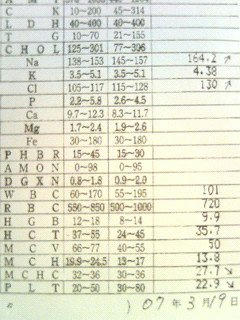 C K 10~200 45~314
L D H 40~400 40~400
T G 10~70 21~155
C H O L 125~301 77~396
Na 138~153 145~157 164.2 ↗
K 3.5~5.1 3.5~5.1 4.38
Cl 105~117 115~128 130 ↗
P 2.2~5.8 2.6~4.5
Ca 9.7~12.3 8.3~11.7
Mg 1.7~2.4 1.9~2.6
Fe 30~180 30~180
P H B R 15~45 15~30
A M O N 0~98 0~95
D G X N 0.8~1.8 0.9~2.0
W B C 60~170 55~195 101
R B C 550~850 500~1000 720
H G B 12~18 8~14 9.9
H C T 37~55 24~45 35.7
M C V 66~77 40~55 50
M C H 19.9~24.5 13~17 13.8
M C H C 32~36 30~36 27.7 ↘
P L T 20~50 30~80 22.9 ↘
07年 3月19日